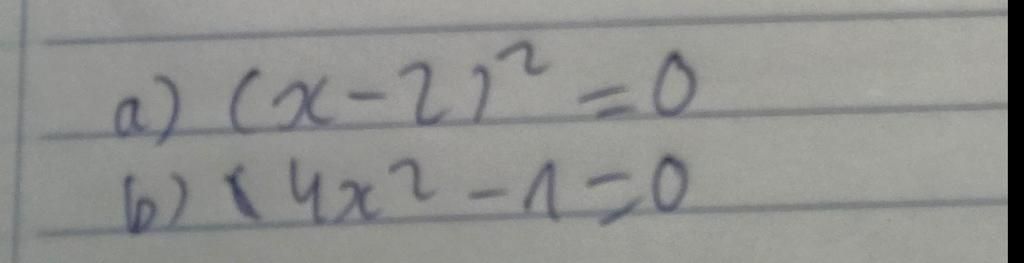 a) (x-2)² = 0
b) (4x² - 1 = 0